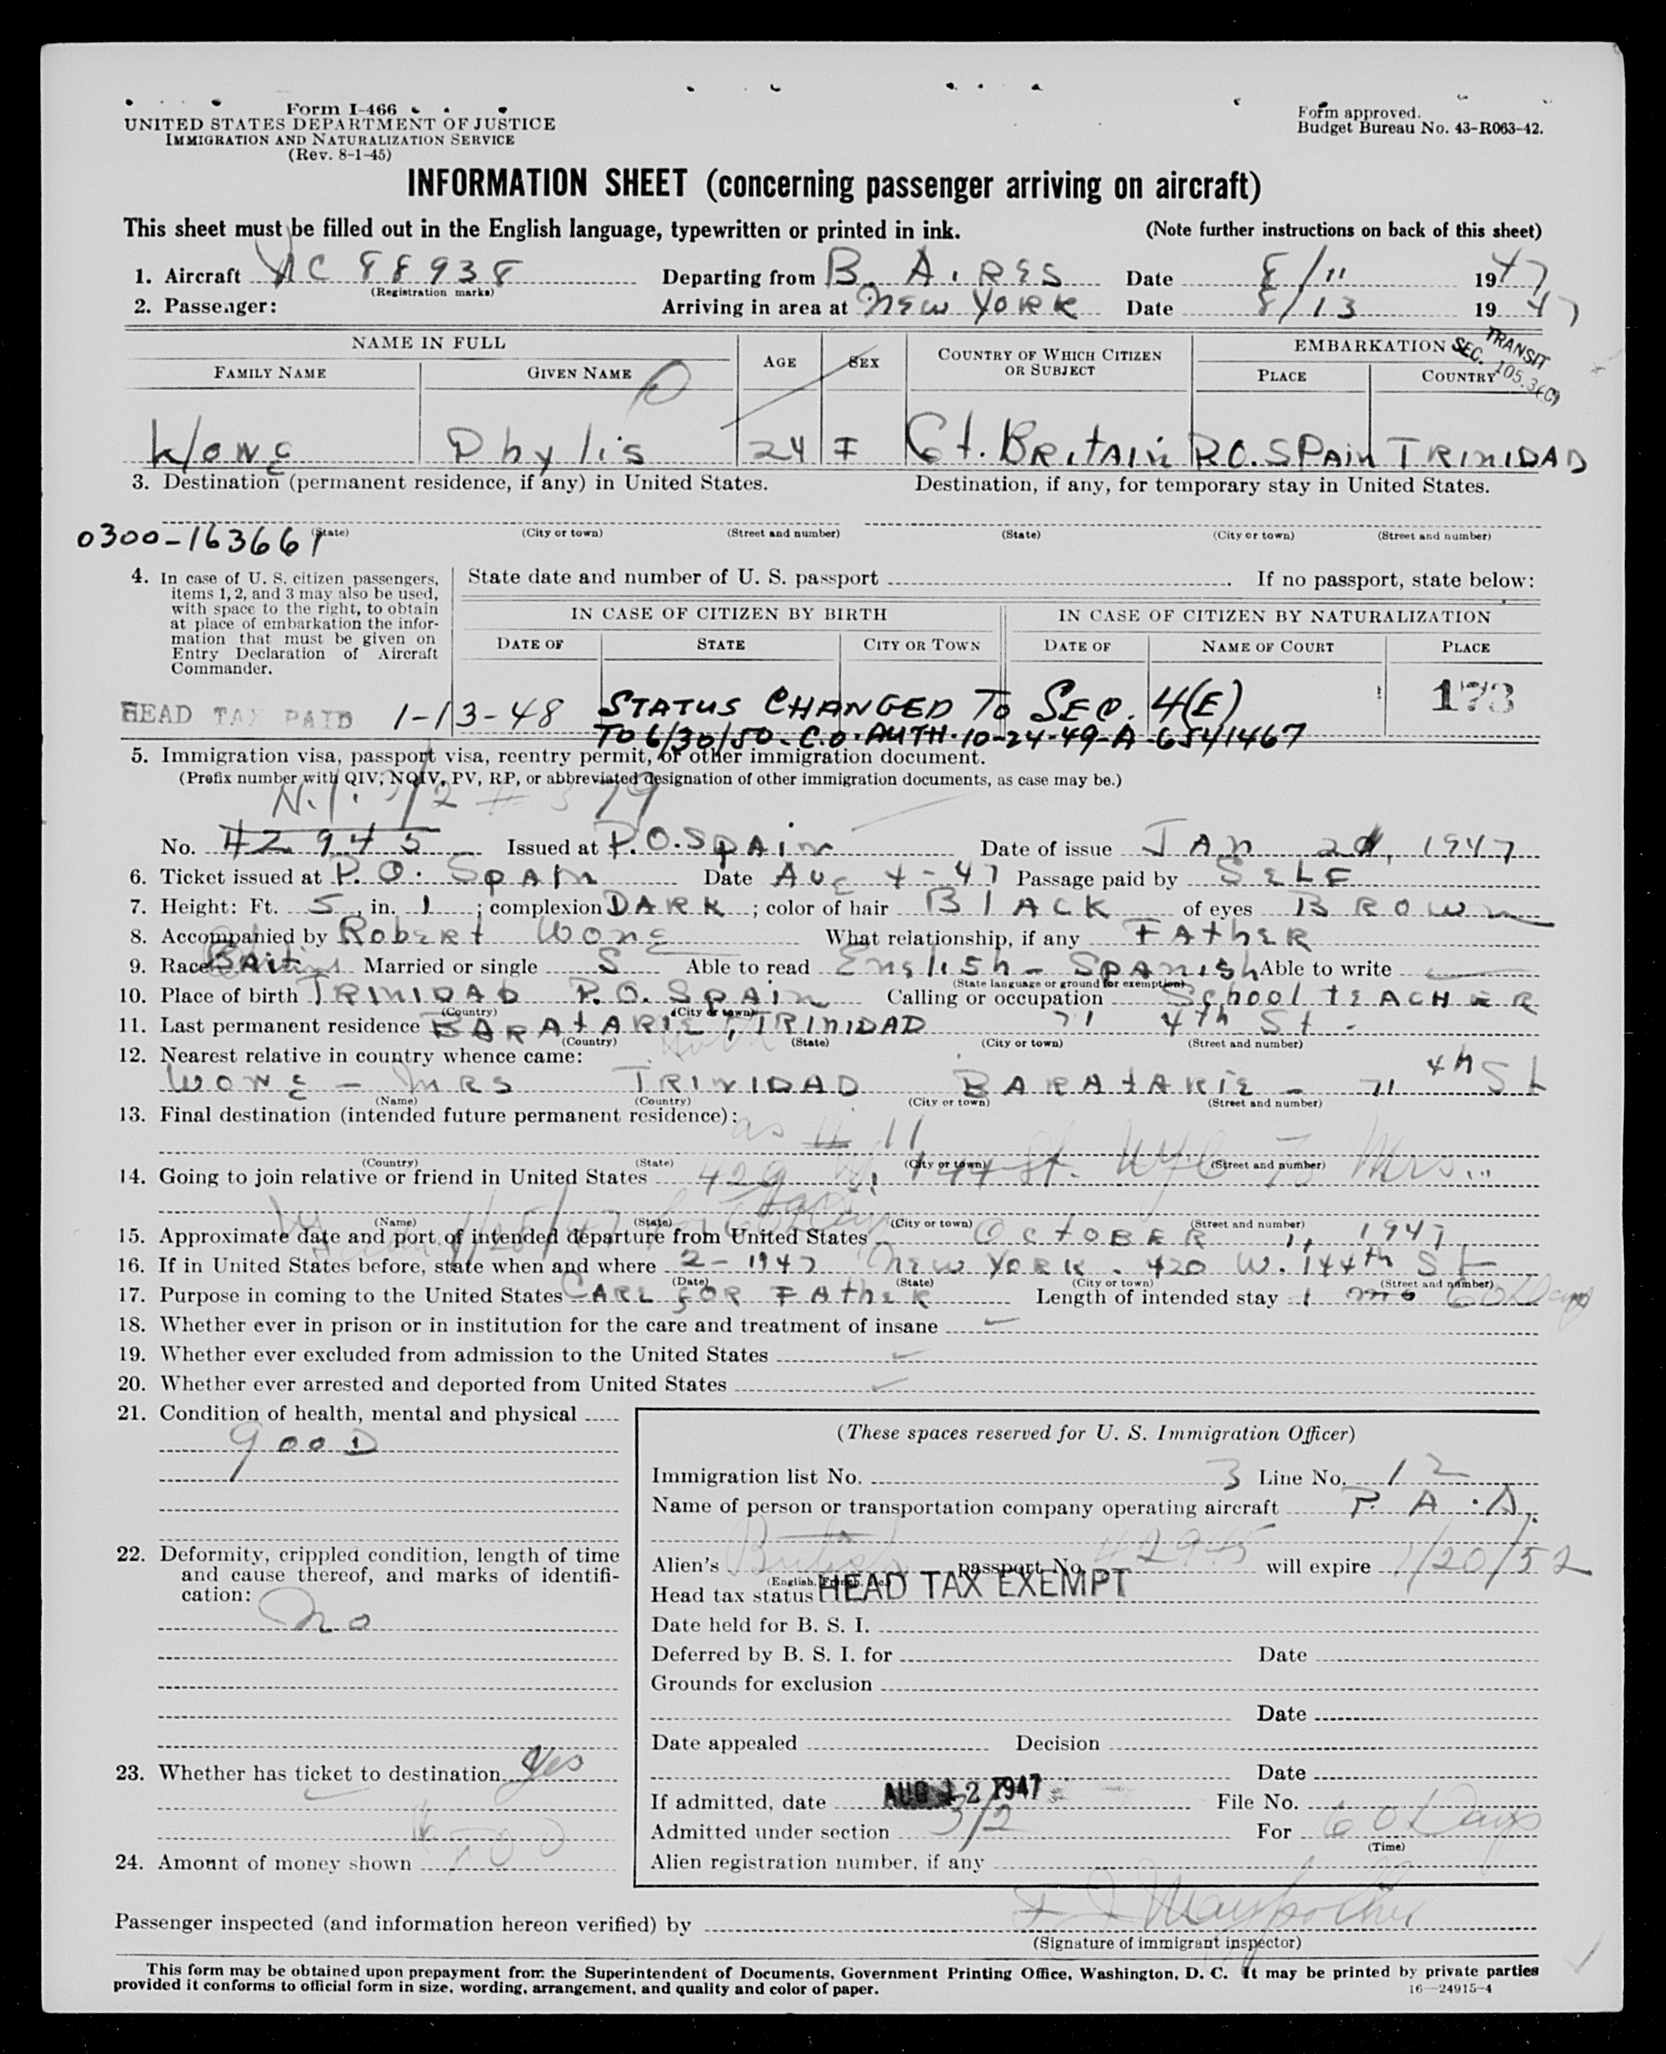 Form I-466
UNITED STATES DEPARTMENT OF JUSTICE
IMMIGRATION AND NATURALIZATION SERVICE
(Rev. 8-1-45)
Form approved.
Budget Bureau No. 43-R063-42.
INFORMATION SHEET (concerning passenger arriving on aircraft)
This sheet must be filled out in the English language, typewritten or printed in ink. (Note further instructions on back of this sheet)
1. Aircraft NC 88938 Departing from B. AIRES Date 8/11 1947
(Registration marks)
2. Passenger: Arriving in area at NEW YORK Date 8/13 1947
NAME IN FULL AGE SEX COUNTRY OF WHICH CITIZEN OR SUBJECT EMBARKATION
TRANSIT
SEC.
FAMILY NAME GIVEN NAME PLACE COUNTRY
WONG Phylis 24 F Gt. BRITAIN P.O. SPAIN TRINIDAD
3. Destination (permanent residence, if any) in United States. Destination, if any, for temporary stay in United States.
0300-163661
(State) (City or town) (Street and number) (State) (City or town) (Street and number)
4. In case of U. S. citizen passengers, items 1, 2, and 3 may also be used, with space to the right, to obtain at place of embarkation the information that must be given on Entry Declaration of Aircraft Commander.
State date and number of U. S. passport If no passport, state below:
IN CASE OF CITIZEN BY BIRTH IN CASE OF CITIZEN BY NATURALIZATION
DATE OF STATE CITY OR TOWN DATE OF NAME OF COURT PLACE
HEAD TAX PAID 1-13-48 STATUS CHANGED TO SEC. 4(E) 173
TO 6/30/50. C.O. AUTH. 10-24-49-A-6541467
5. Immigration visa, passport visa, reentry permit, or other immigration document.
(Prefix number with QIV, NQIV, PV, RP, or abbreviated designation of other immigration documents, as case may be.)
No. 42945 Issued at P.O. SPAIN Date of issue JAN 20, 1947
6. Ticket issued at P.O. SPAIN Date AUG 4-47 Passage paid by SELF
7. Height: Ft. 5, in. 1; complexion DARK; color of hair BLACK of eyes BROWN
8. Accompanied by ROBERT WONG What relationship, if any FATHER
9. Race Married or single S Able to read ENGLISH - SPANISH Able to write
(State language or ground for exemption)
10. Place of birth TRINIDAD P.O. SPAIN Calling or occupation SCHOOL TEACHER
(Country) (City or town)
11. Last permanent residence BARATARIE, TRINIDAD 71 4th St.
(Country) (State) (City or town) (Street and number)
12. Nearest relative in country whence came:
WONG - MRS TRINIDAD BARATARIE - 71 4th St
(Name) (Country) (City or town) (Street and number)
13. Final destination (intended future permanent residence):
as 11
(Country) (State) (City or town) (Street and number)
14. Going to join relative or friend in United States 429 W. 144 St. NYC Mrs.
(Name) (State) (City or town) (Street and number)
15. Approximate date and port of intended departure from United States OCTOBER 11, 1947
16. If in United States before, state when and where 2-1947 NEW YORK. 420 W. 144th St
(Date) (State) (City or town) (Street and number)
17. Purpose in coming to the United States CARE FOR FATHER Length of intended stay 1 mo 60 Days
18. Whether ever in prison or in institution for the care and treatment of insane
19. Whether ever excluded from admission to the United States
20. Whether ever arrested and deported from United States
21. Condition of health, mental and physical
GOOD
(These spaces reserved for U. S. Immigration Officer)
Immigration list No. 3 Line No. 12
Name of person or transportation company operating aircraft P. A. A.
22. Deformity, crippled condition, length of time and cause thereof, and marks of identification:
No
Alien's British passport No. 42945 will expire 1/20/52
Head tax status HEAD TAX EXEMPT
Date held for B. S. I.
Deferred by B. S. I. for Date
Grounds for exclusion
Date
Date appealed Decision
23. Whether has ticket to destination Yes
Date
If admitted, date AUG 12 1947 File No.
Admitted under section 3/2 For 60 Days
(Time)
24. Amount of money shown
Alien registration number, if any
Passenger inspected (and information hereon verified) by
(Signature of immigrant inspector)
This form may be obtained upon prepayment from the Superintendent of Documents, Government Printing Office, Washington, D. C. It may be printed by private parties
provided it conforms to official form in size, wording, arrangement, and quality and color of paper. 16—24915-4